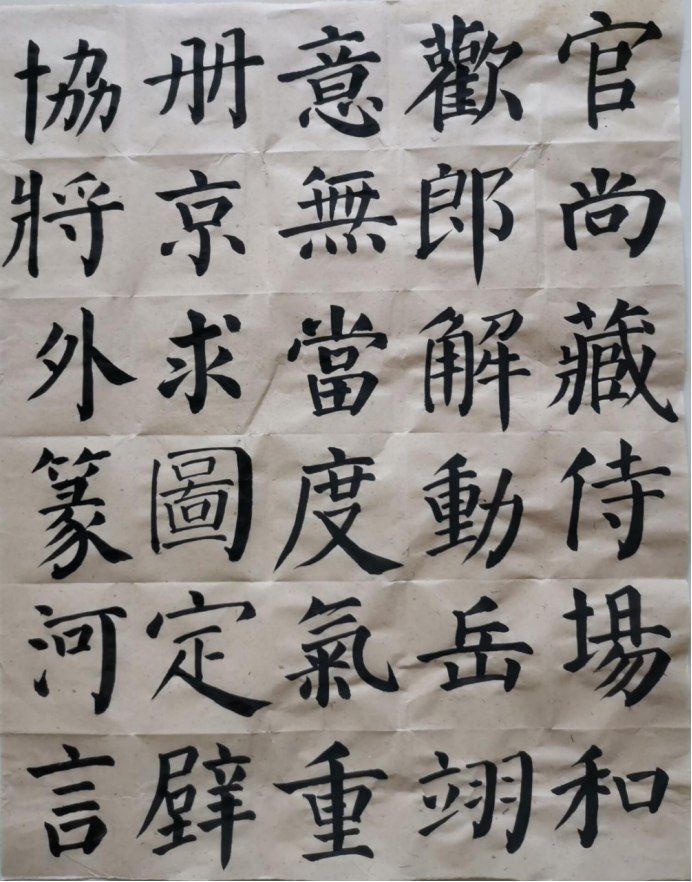 官尚藏侍場和
歡郎解動岳翊
意無當度氣重
册京求圖定壁
協將外篆河言